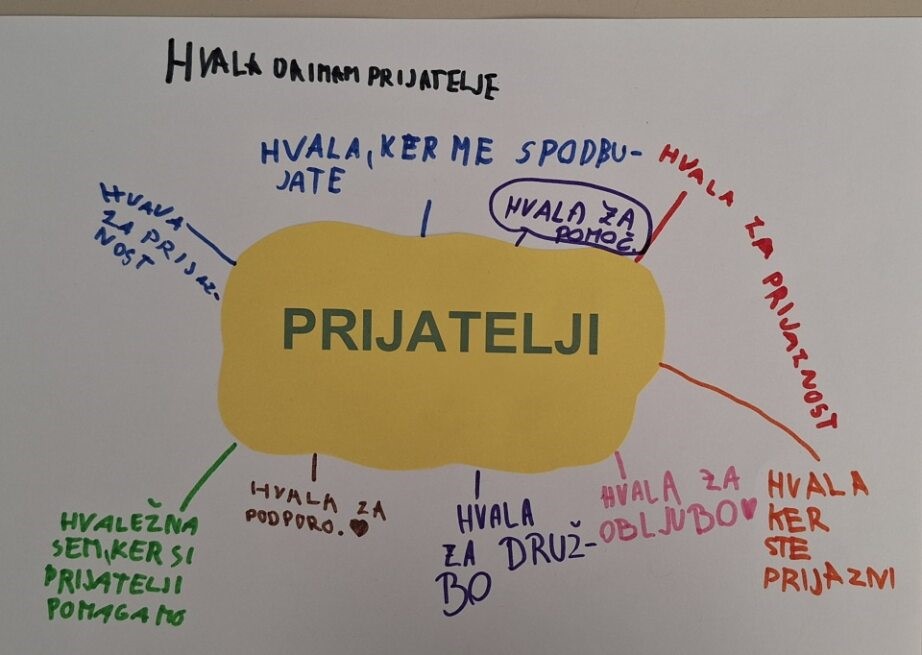 HVALA DA IMAM PRIJATELJE
HVALA, KER ME SPODBU-
JATE
HVALA ZA PRIJAZNOST
HVAVA
ZA PRIJAZ-
NOST
HVALA ZA
POMOČ.
PRIJATELJI
HVALEŽNA
SEM, KER SI
PRIJATELJI
POMAGAMO
HVALA ZA
PODPORO.
HVALA
ZA DRUŽ-
BO
HVALA ZA
OBLJUBO
HVALA
KER
STE
PRIJAZNI